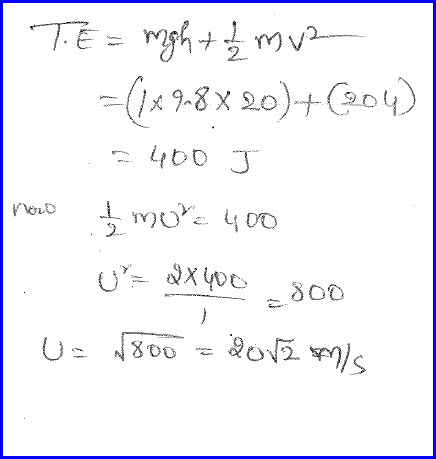 T.E = mgh + 1/2 mv²
= (1 x 9.8 x 20) + (204)
= 400 J
now 1/2 mU² = 400
U² = 2x400/1 = 800
U = √800 = 20√2 m/s